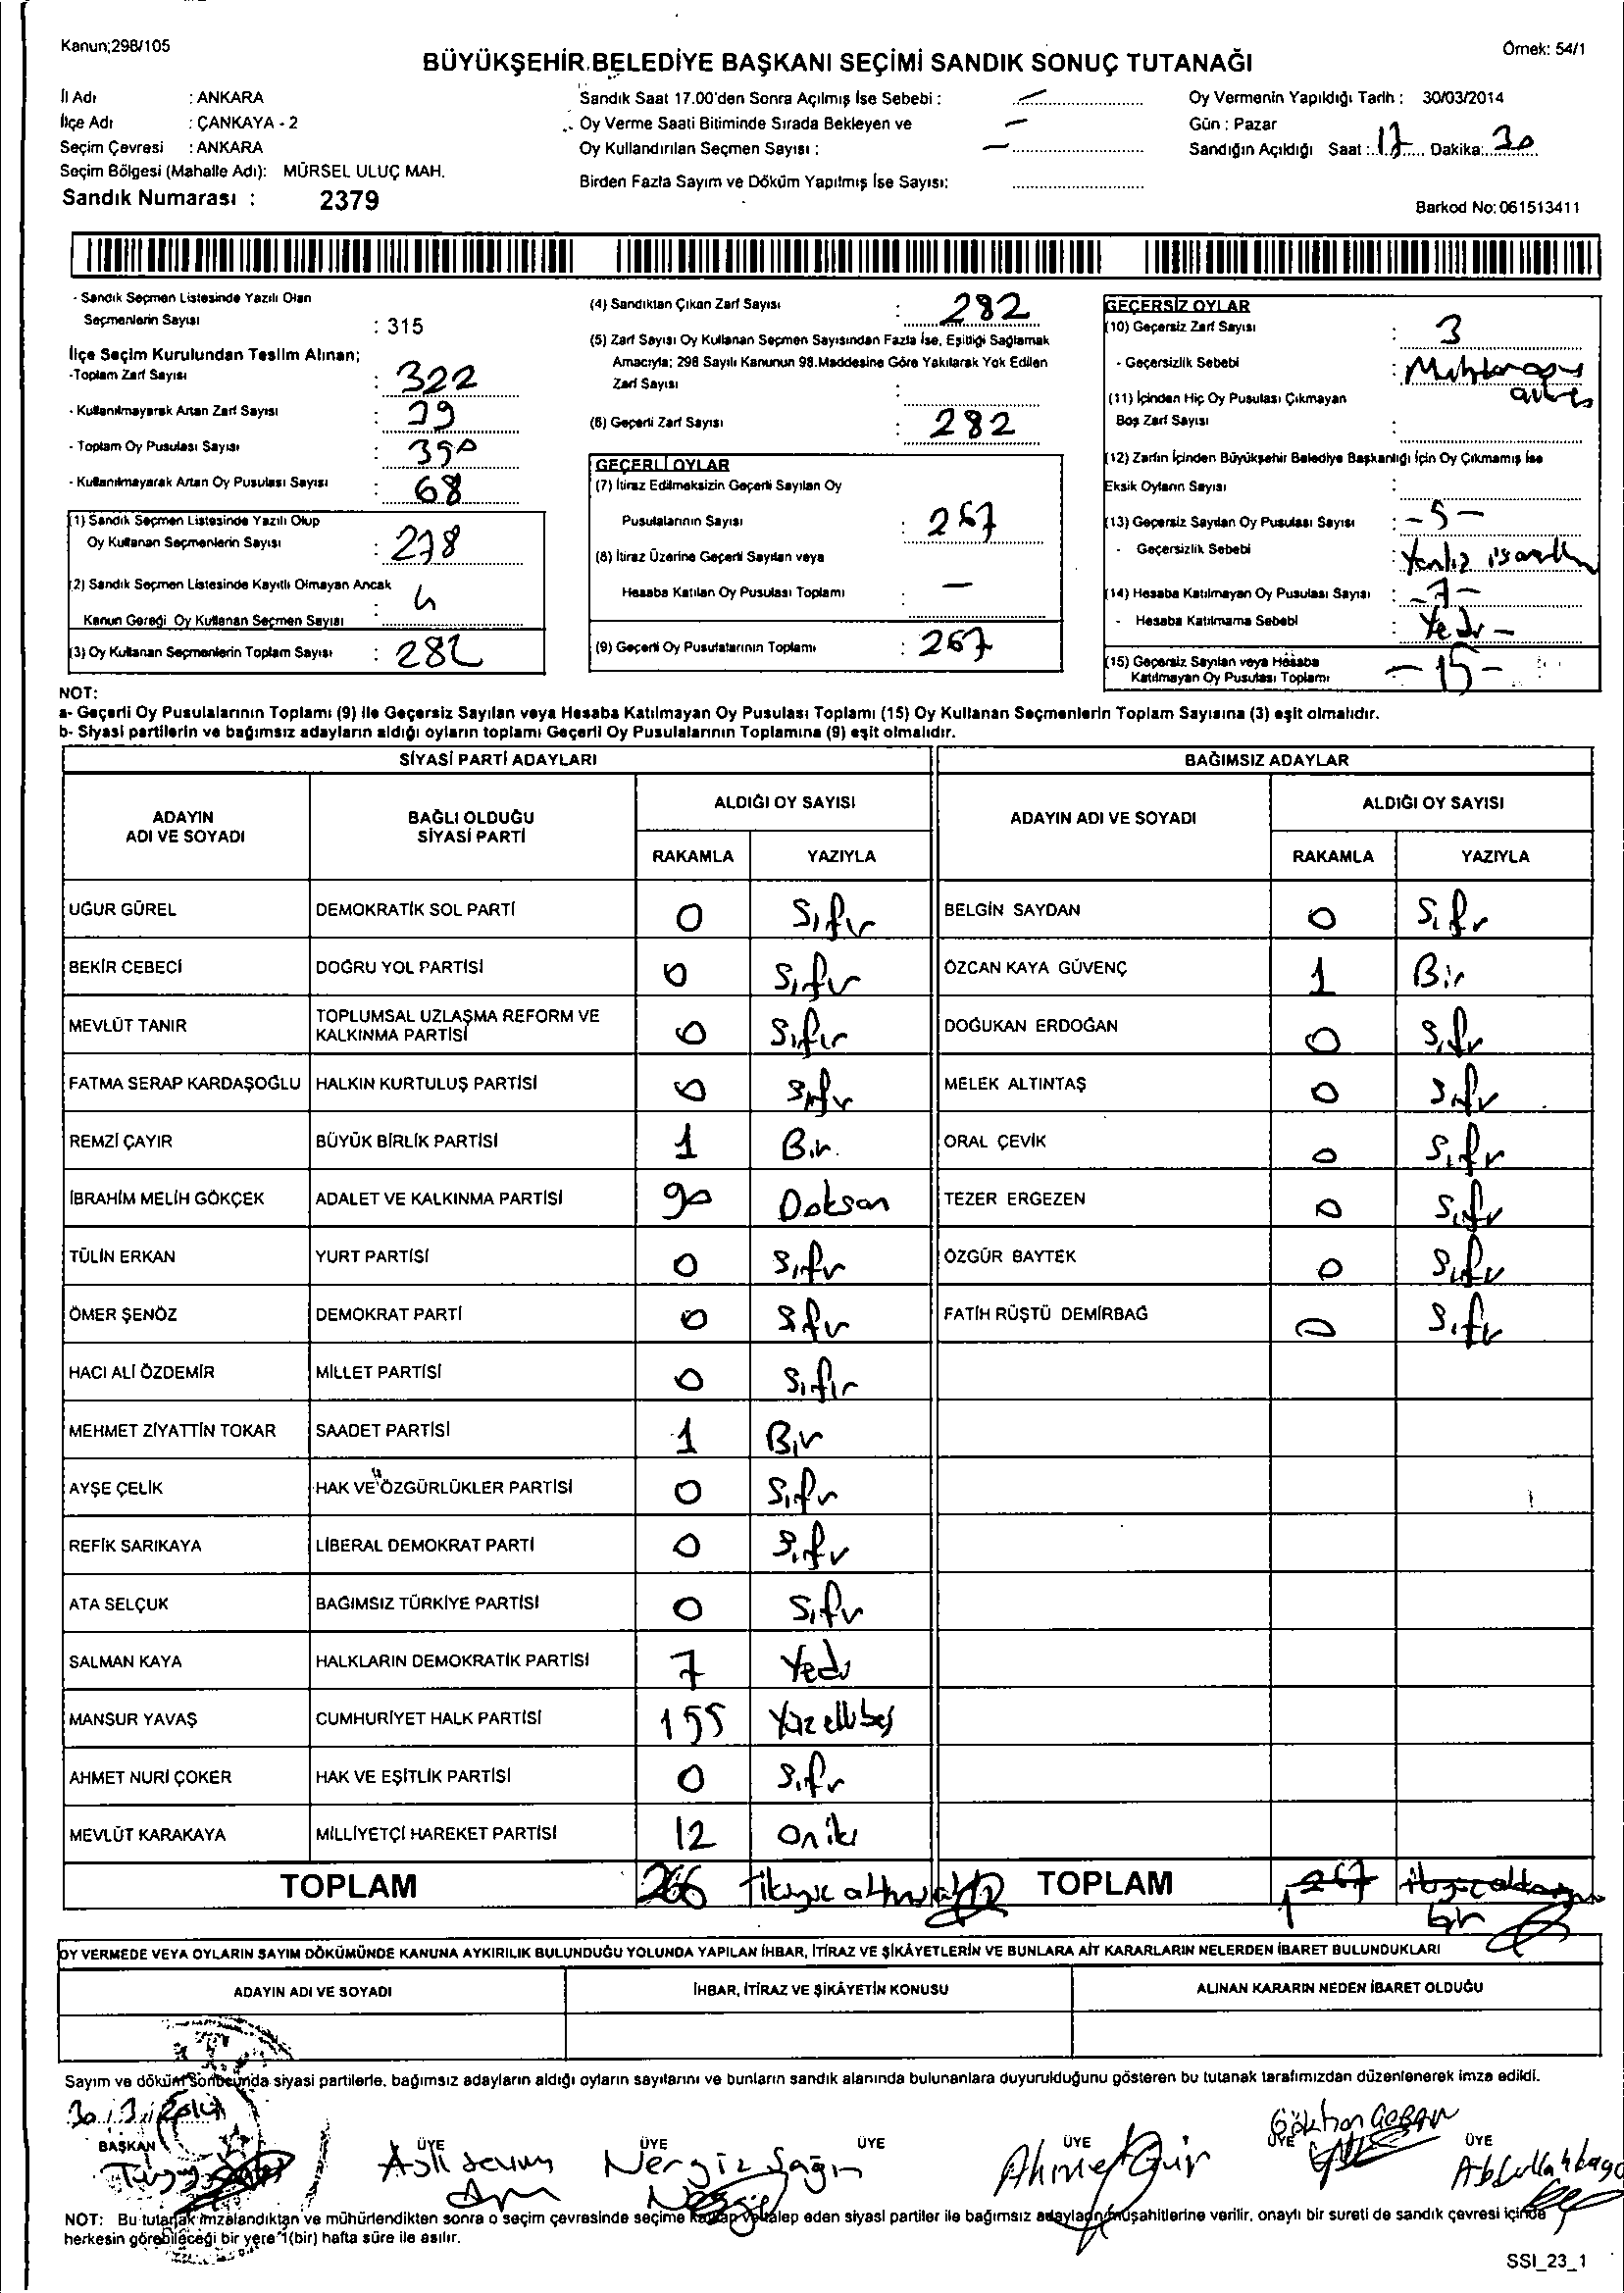 Kanun;298/105
Örnek: 54/1
BÜYÜKŞEHİR BELEDİYE BAŞKANI SEÇİMİ SANDIK SONUÇ TUTANAĞI
İl Adı : ANKARA
İlçe Adı : ÇANKAYA - 2
Seçim Çevresi : ANKARA
Seçim Bölgesi (Mahalle Adı): MÜRSEL ULUÇ MAH.
Sandık Numarası : 2379
Sandık Saat 17.00'den Sonra Açılmış İse Sebebi : —
Oy Verme Saati Bitiminde Sırada Bekleyen ve —
Oy Kullandırılan Seçmen Sayısı : —
Birden Fazla Sayım ve Döküm Yapılmış İse Sayısı:
Oy Vermenin Yapıldığı Tarih : 30/03/2014
Gün : Pazar
Sandığın Açıldığı Saat : 17 Dakika: 30
Barkod No: 061513411
- Sandık Seçmen Listesinde Yazılı Olan
Seçmenlerin Sayısı : 315
İlçe Seçim Kurulundan Teslim Alınan;
-Toplam Zarf Sayısı : 322
- Kullanılmayarak Artan Zarf Sayısı : 39
- Toplam Oy Pusulası Sayısı : 350
- Kullanılmayarak Artan Oy Pusulası Sayısı : 68
(1) Sandık Seçmen Listesinde Yazılı Olup
Oy Kullanan Seçmenlerin Sayısı : 278
(2) Sandık Seçmen Listesinde Kayıtlı Olmayan Ancak
Kanun Gereği Oy Kullanan Seçmen Sayısı : 4
(3) Oy Kullanan Seçmenlerin Toplam Sayısı : 282
(4) Sandıktan Çıkan Zarf Sayısı : 282
(5) Zarf Sayısı Oy Kullanan Seçmen Sayısından Fazla İse, Eşitliği Sağlamak
Amacıyla; 298 Sayılı Kanunun 98.Maddesine Göre Yakılarak Yok Edilen
Zarf Sayısı :
(6) Geçerli Zarf Sayısı : 282
GEÇERLİ OYLAR
(7) İtiraz Edilmeksizin Geçerli Sayılan Oy
Pusulalarının Sayısı : 267
(8) İtiraz Üzerine Geçerli Sayılan veya
Hesaba Katılan Oy Pusulası Toplamı : —
(9) Geçerli Oy Pusulalarının Toplamı : 267
GEÇERSİZ OYLAR
(10) Geçersiz Zarf Sayısı : 3
- Geçersizlik Sebebi :
(11) İçinden Hiç Oy Pusulası Çıkmayan
Boş Zarf Sayısı :
(12) Zarfın İçinden Büyükşehir Belediye Başkanlığı İçin Oy Çıkmamış İse
Eksik Oyların Sayısı :
(13) Geçersiz Sayılan Oy Pusulası Sayısı : -5-
- Geçersizlik Sebebi :
(14) Hesaba Katılmayan Oy Pusulası Sayısı : -7-
- Hesaba Katılmama Sebebi : Yedi -
(15) Geçersiz Sayılan veya Hesaba
Katılmayan Oy Pusulası Toplamı -15-
NOT:
a- Geçerli Oy Pusulalarının Toplamı (9) ile Geçersiz Sayılan veya Hesaba Katılmayan Oy Pusulası Toplamı (15) Oy Kullanan Seçmenlerin Toplam Sayısına (3) eşit olmalıdır.
b- Siyasi partilerin ve bağımsız adayların aldığı oyların toplamı Geçerli Oy Pusulalarının Toplamına (9) eşit olmalıdır.
SİYASİ PARTİ ADAYLARI
ADAYIN ADI VE SOYADI
BAĞLI OLDUĞU SİYASİ PARTİ
ALDIĞI OY SAYISI
RAKAMLA YAZIYLA
UĞUR GÜREL DEMOKRATİK SOL PARTİ 0 Sıfır
BEKİR CEBECİ DOĞRU YOL PARTİSİ 0 Sıfır
MEVLÜT TANIR TOPLUMSAL UZLAŞMA REFORM VE KALKINMA PARTİSİ 0 Sıfır
FATMA SERAP KARDAŞOĞLU HALKIN KURTULUŞ PARTİSİ 0 Sıfır
REMZİ ÇAYIR BÜYÜK BİRLİK PARTİSİ 1 Bir
İBRAHİM MELİH GÖKÇEK ADALET VE KALKINMA PARTİSİ 90 Doksan
TÜLİN ERKAN YURT PARTİSİ 0 Sıfır
ÖMER ŞENÖZ DEMOKRAT PARTİ 0 Sıfır
HACI ALİ ÖZDEMİR MİLLET PARTİSİ 0 Sıfır
MEHMET ZİYATTİN TOKAR SAADET PARTİSİ 1 Bir
AYŞE ÇELİK HAK VE ÖZGÜRLÜKLER PARTİSİ 0 Sıfır
REFİK SARIKAYA LİBERAL DEMOKRAT PARTİ 0 Sıfır
ATA SELÇUK BAĞIMSIZ TÜRKİYE PARTİSİ 0 Sıfır
SALMAN KAYA HALKLARIN DEMOKRATİK PARTİSİ 7 Yedi
MANSUR YAVAŞ CUMHURİYET HALK PARTİSİ 155 Yüzellibeş
AHMET NURİ ÇOKER HAK VE EŞİTLİK PARTİSİ 0 Sıfır
MEVLÜT KARAKAYA MİLLİYETÇİ HAREKET PARTİSİ 12 Oniki
TOPLAM 266
BAĞIMSIZ ADAYLAR
ADAYIN ADI VE SOYADI
ALDIĞI OY SAYISI
RAKAMLA YAZIYLA
BELGİN SAYDAN 0 Sıfır
ÖZCAN KAYA GÜVENÇ 1 Bir
DOĞUKAN ERDOĞAN 0 Sıfır
MELEK ALTINTAŞ 0 Sıfır
ORAL ÇEVİK 0 Sıfır
TEZER ERGEZEN 0 Sıfır
ÖZGÜR BAYTEK 0 Sıfır
FATİH RÜŞTÜ DEMİRBAĞ 0 Sıfır
TOPLAM 267
1 bir
OY VERMEDE VEYA OYLARIN SAYIM DÖKÜMÜNDE KANUNA AYKIRILIK BULUNDUĞU YOLUNDA YAPILAN İHBAR, İTİRAZ VE ŞİKÂYETLERİN VE BUNLARA AİT KARARLARIN NELERDEN İBARET BULUNDUKLARI
ADAYIN ADI VE SOYADI İHBAR, İTİRAZ VE ŞİKÂYETİN KONUSU ALINAN KARARIN NEDEN İBARET OLDUĞU
Sayım ve döküm sonucunda siyasi partilerle, bağımsız adayların aldığı oyların sayılarını ve bunların sandık alanında bulunanlara duyurulduğunu gösteren bu tutanak tarafımızdan düzenlenerek imza edildi.
30/3/2014
BAŞKAN ÜYE ÜYE ÜYE ÜYE ÜYE ÜYE
Nergiz Sağın
Ahmet Gür
NOT: Bu tutanak imzalandıktan ve mühürlendikten sonra o seçim çevresinde seçime katılıp ve talep eden siyasi partiler ile bağımsız adayların müşahitlerine verilir, onaylı bir sureti de sandık çevresi içinde
herkesin görebileceği bir yere 1(bir) hafta süre ile asılır.
SSI_23_1